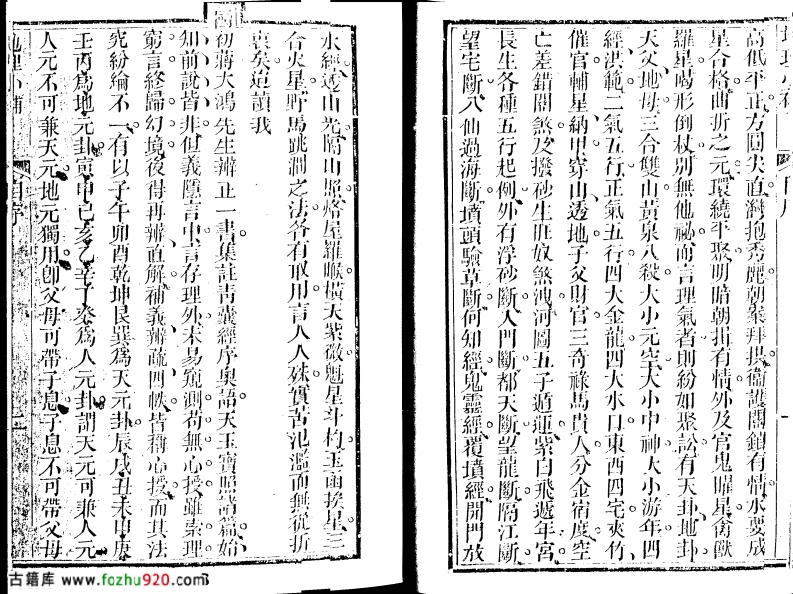 高低平正方圓尖直灣抱秀麗朝案拜拱衛護閣鎖有情水要成
星合格曲折之元環繞平聚明暗朝揖有情外及官鬼曜星禽獸
羅星喝形倒杖別無他祕而言理氣者則紛如聚訟有天卦地卦
天父地母三合雙山黃泉八殺大小元空大小中神大小游年四
經洪範二氣五行正氣五行四大金龍四大水口東西四宅夾竹
催官輔星納甲穿山透地子父財官三奇祿馬貴人分金宿度空
亡差錯關煞及撥砂生旺奴煞洩河圖五子遁運紫白飛遁年宮
長生各種五行起例外有浮砂斷人門斷都天斷望龍斷隔江斷
望宅斷八仙過海斷墳頭驗草斷何知經鬼靈經覆墳經開門放
水經透山光隔山照烙星羅㬋橫天紫微魁星斗杓玉函挨星三
合火星野馬跳澗之法各有取用言人人殊實苦氾濫而無從折
衷矣迨讀我
初蔣大鴻先生辨正一書集註青囊經序奧語天玉寶照諸篇始
知前說皆非但義隱言中言存理外未易窺測苟無心授雖索理
窮言終歸幻境後得再辨直解補義辨疏四帙皆稱心授而其法
究紛綸不一有以子午卯酉乾坤艮巽為天元卦辰戌丑未甲庚
壬丙為地元卦寅申巳亥乙辛丁癸為人元卦謂天元可兼人元
人元不可兼天元地元獨用卽父母可帶子息子息不可帶父母
古籍库 www.fozhu920.com